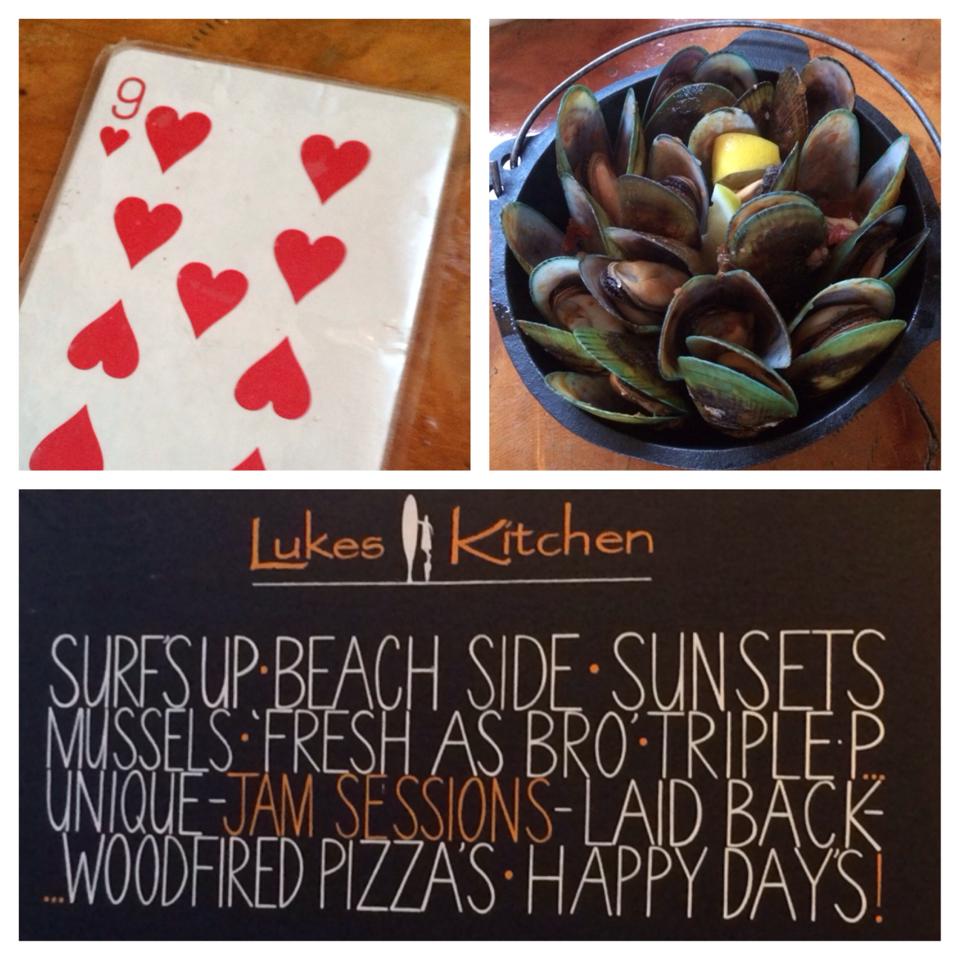 9
Lukes Kitchen
SURF'S UP · BEACH SIDE · SUNSETS
MUSSELS · 'FRESH AS BRO' · TRIPLE · P...
UNIQUE - JAM SESSIONS - LAID BACK -
...WOODFIRED PIZZA'S · HAPPY DAY'S!